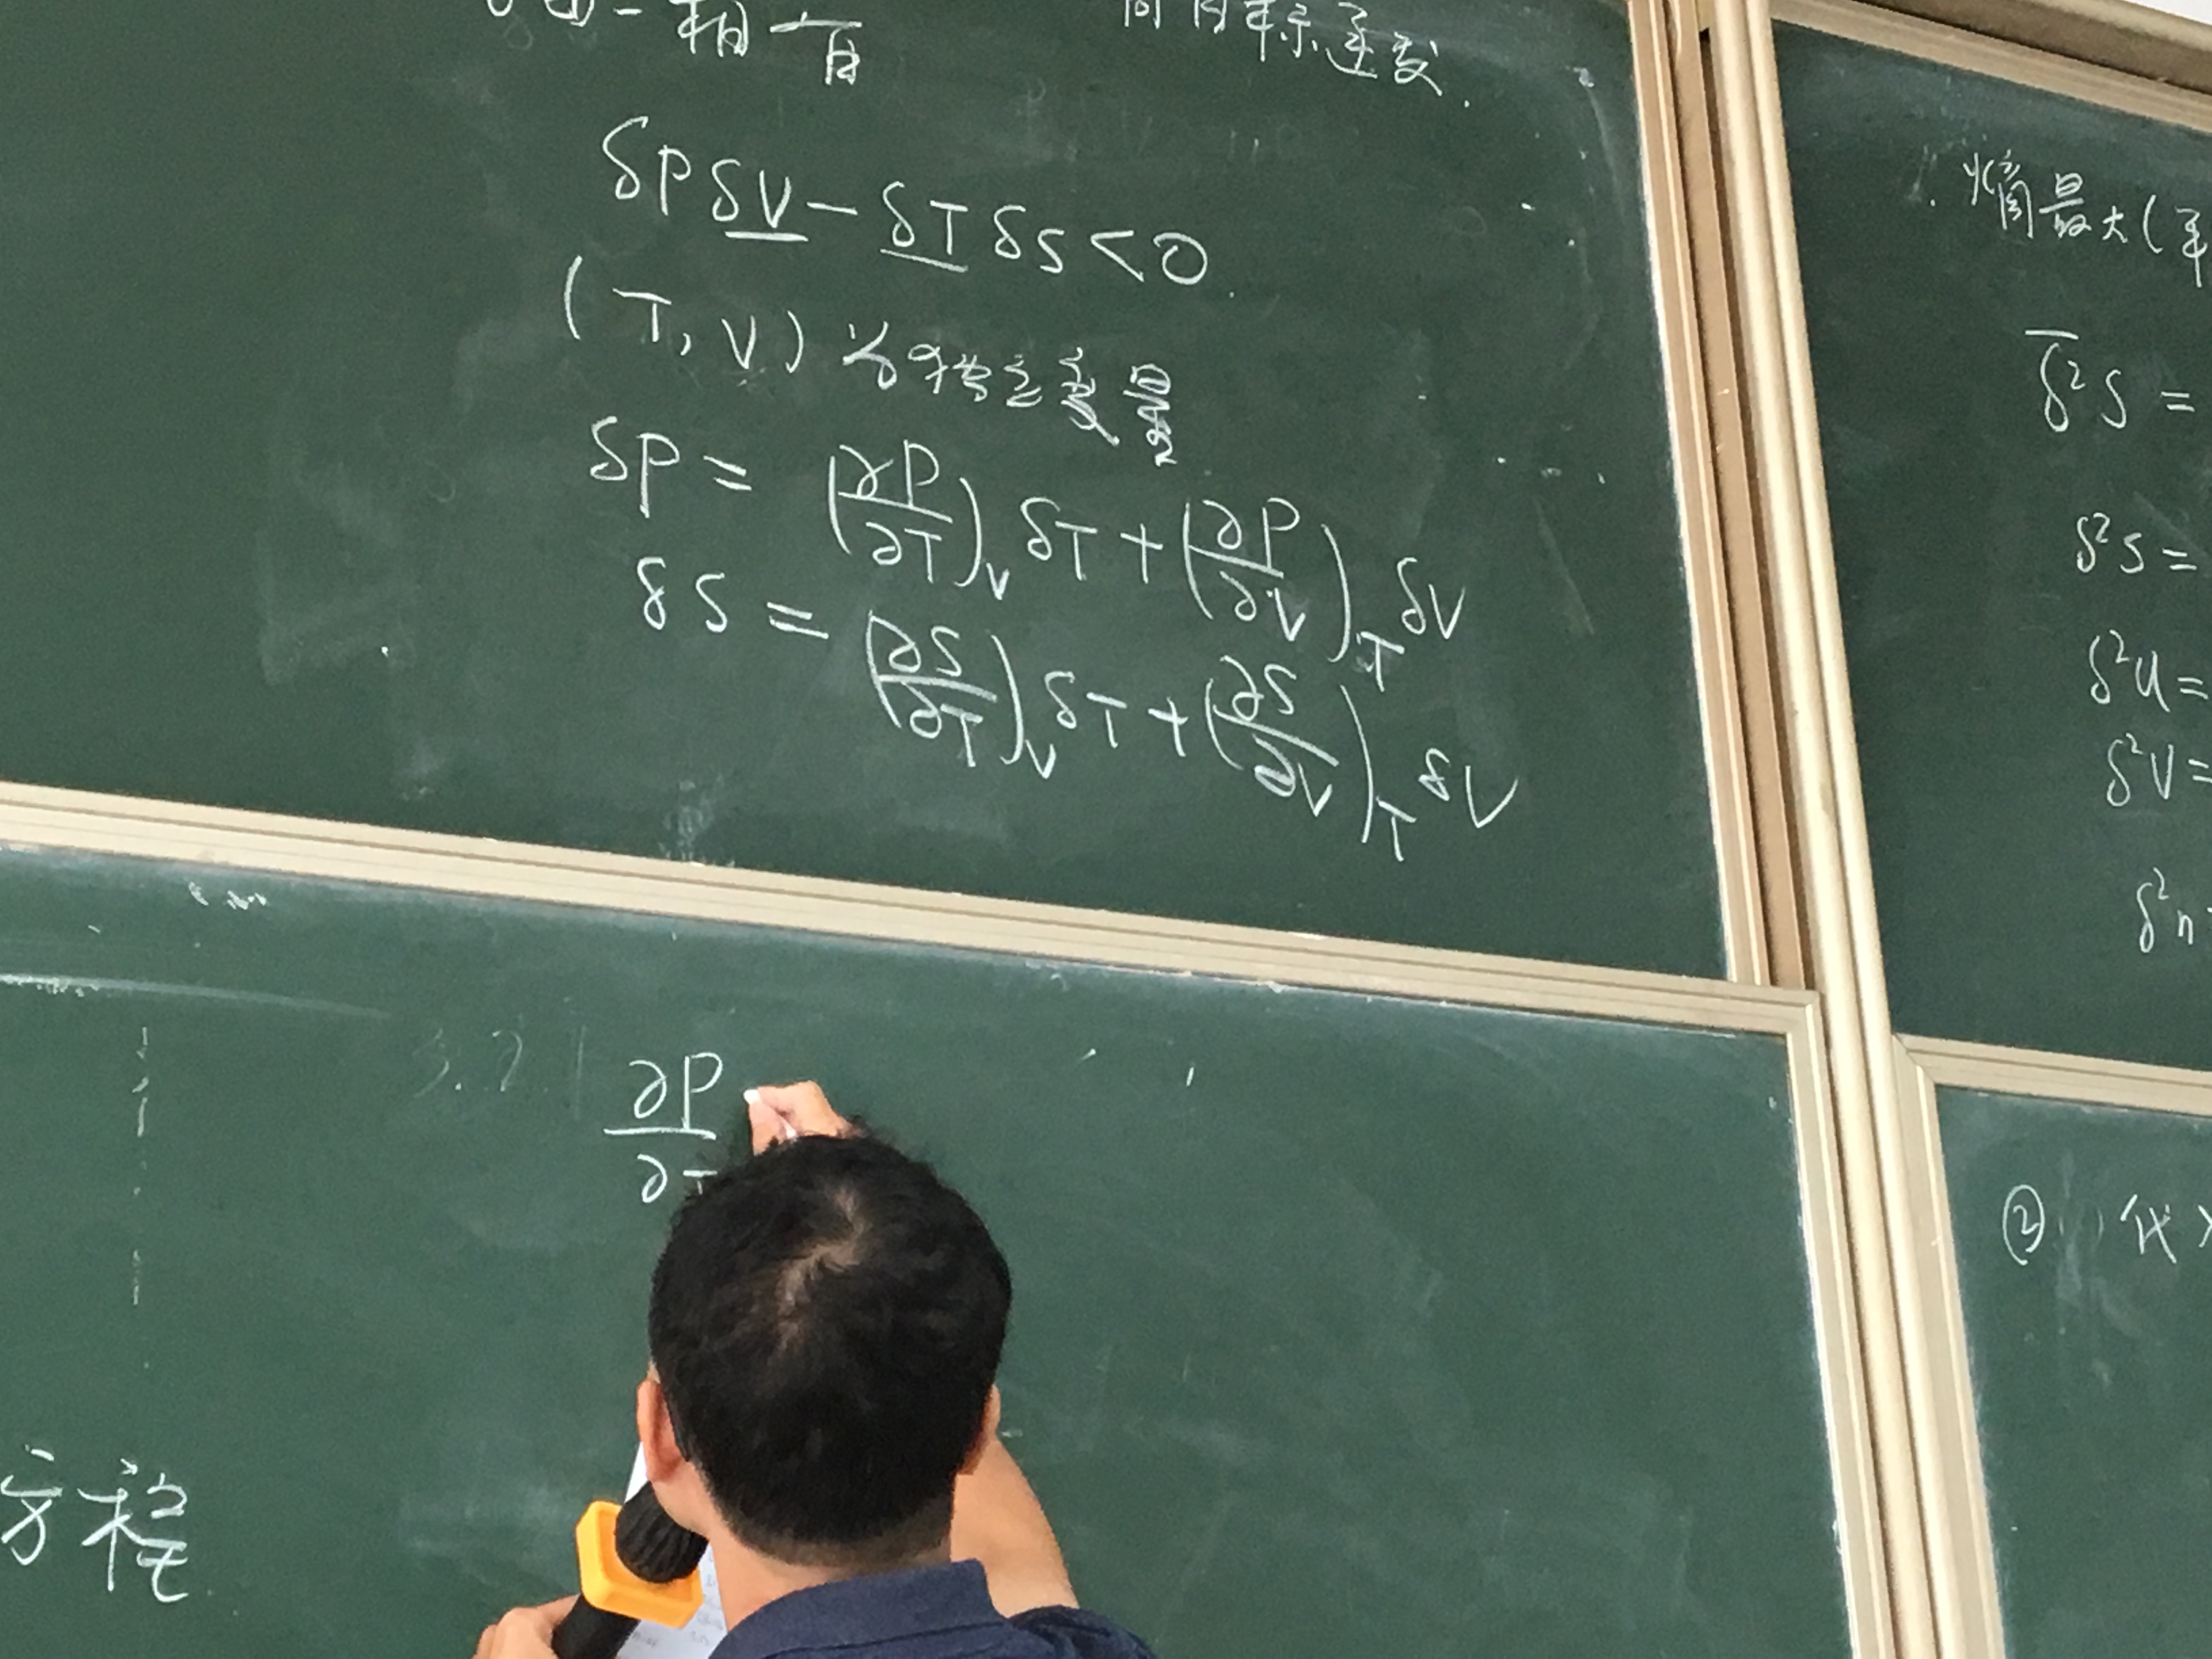 相有
δPδV - δTδS < 0.
(T, V) 为独立变量
δP = (∂P/∂T)_V δT + (∂P/∂V)_T δV
δS = (∂S/∂T)_V δT + (∂S/∂V)_T δV
∂P
∂T
方程
熵最大(
δ²S =
δ²S =
δ²U =
δ²V =
δ²n
② 代